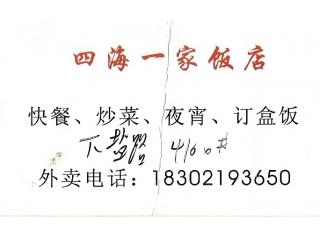 四海一家饭店
快餐、炒菜、夜宵、订盒饭
下盐路 4160#
外卖电话：18302193650